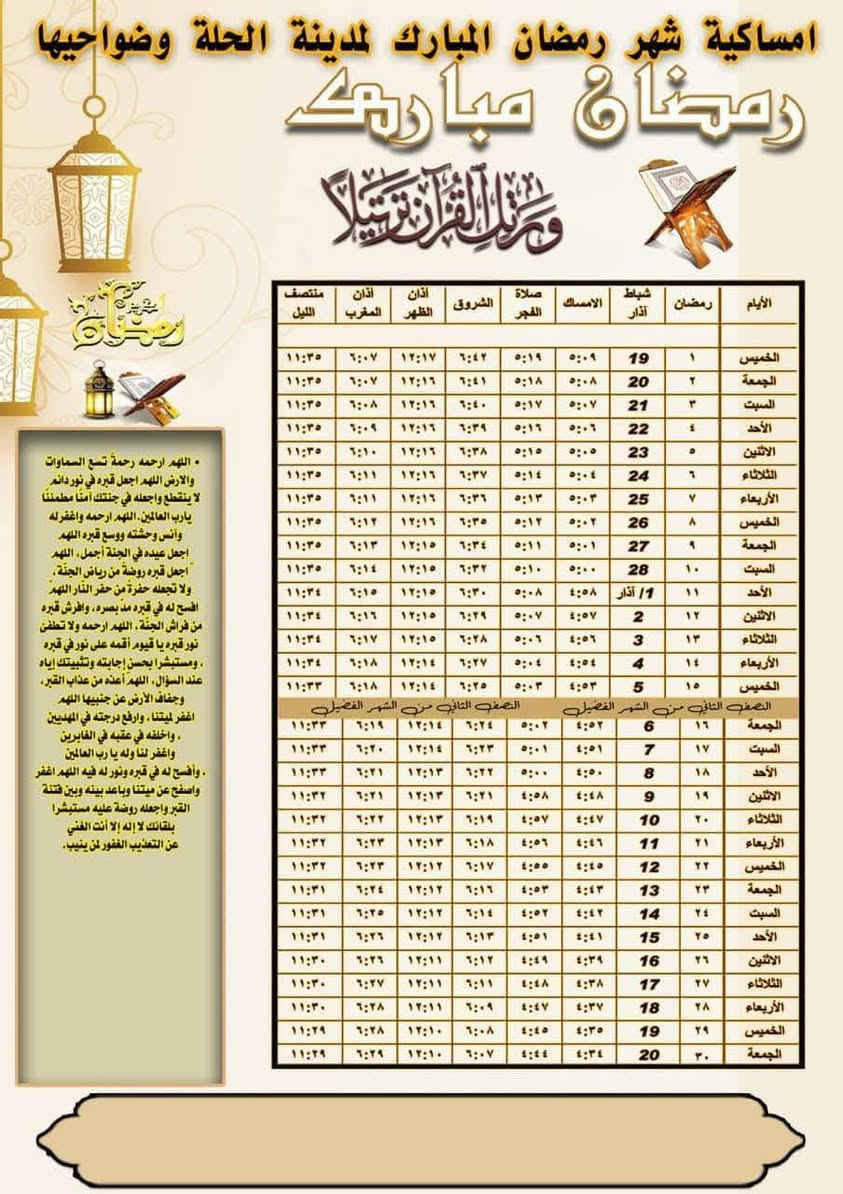 امساكية شهر رمضان المبارك لمدينة الحلة وضواحيها
رمضان مبارك
ورتل القرآن ترتيلا
رمضان
الأيام رمضان شباط آذار الامساك صلاة الفجر الشروق أذان الظهر أذان المغرب منتصف الليل
الخميس ١ 19 ٥:٠٩ ٥:١٩ ٦:٤٢ ١٢:١٧ ٦:٠٧ ١١:٣٥
الجمعة ٢ 20 ٥:٠٨ ٥:١٨ ٦:٤١ ١٢:١٦ ٦:٠٧ ١١:٣٥
السبت ٣ 21 ٥:٠٧ ٥:١٧ ٦:٤٠ ١٢:١٦ ٦:٠٨ ١١:٣٥
الأحد ٤ 22 ٥:٠٦ ٥:١٦ ٦:٣٩ ١٢:١٦ ٦:٠٩ ١١:٣٥
الاثنين ٥ 23 ٥:٠٥ ٥:١٥ ٦:٣٨ ١٢:١٦ ٦:١٠ ١١:٣٥
الثلاثاء ٦ 24 ٥:٠٤ ٥:١٤ ٦:٣٧ ١٢:١٦ ٦:١١ ١١:٣٥
الأربعاء ٧ 25 ٥:٠٣ ٥:١٣ ٦:٣٦ ١٢:١٦ ٦:١١ ١١:٣٥
الخميس ٨ 26 ٥:٠٢ ٥:١٢ ٦:٣٥ ١٢:١٦ ٦:١٢ ١١:٣٥
الجمعة ٩ 27 ٥:٠١ ٥:١١ ٦:٣٤ ١٢:١٥ ٦:١٣ ١١:٣٥
السبت ١٠ 28 ٥:٠٠ ٥:١٠ ٦:٣٢ ١٢:١٥ ٦:١٤ ١١:٣٥
الأحد ١١ 1/ آذار ٤:٥٨ ٥:٠٨ ٦:٣٠ ١٢:١٥ ٦:١٥ ١١:٣٤
الاثنين ١٢ 2 ٤:٥٧ ٥:٠٧ ٦:٢٩ ١٢:١٥ ٦:١٦ ١١:٣٤
الثلاثاء ١٣ 3 ٤:٥٦ ٥:٠٦ ٦:٢٨ ١٢:١٥ ٦:١٧ ١١:٣٤
الأربعاء ١٤ 4 ٤:٥٤ ٥:٠٤ ٦:٢٧ ١٢:١٤ ٦:١٨ ١١:٣٤
الخميس ١٥ 5 ٤:٥٣ ٥:٠٣ ٦:٢٥ ١٢:١٤ ٦:١٨ ١١:٣٣
النصف الثاني من الشهر الفضيل النصف الثاني من الشهر الفضيل
الجمعة ١٦ 6 ٤:٥٢ ٥:٠٢ ٦:٢٤ ١٢:١٤ ٦:١٩ ١١:٣٣
السبت ١٧ 7 ٤:٥١ ٥:٠١ ٦:٢٣ ١٢:١٤ ٦:٢٠ ١١:٣٣
الأحد ١٨ 8 ٤:٥٠ ٥:٠٠ ٦:٢٢ ١٢:١٣ ٦:٢١ ١١:٣٣
الاثنين ١٩ 9 ٤:٤٨ ٤:٥٨ ٦:٢١ ١٢:١٣ ٦:٢١ ١١:٣٢
الثلاثاء ٢٠ 10 ٤:٤٧ ٤:٥٧ ٦:١٩ ١٢:١٣ ٦:٢٢ ١١:٣٢
الأربعاء ٢١ 11 ٤:٤٦ ٤:٥٦ ٦:١٨ ١٢:١٣ ٦:٢٣ ١١:٣٢
الخميس ٢٢ 12 ٤:٤٥ ٤:٥٥ ٦:١٧ ١٢:١٢ ٦:٢٣ ١١:٣٢
الجمعة ٢٣ 13 ٤:٤٣ ٤:٥٣ ٦:١٦ ١٢:١٢ ٦:٢٤ ١١:٣١
السبت ٢٤ 14 ٤:٤٢ ٤:٥٢ ٦:١٤ ١٢:١٢ ٦:٢٥ ١١:٣١
الأحد ٢٥ 15 ٤:٤١ ٤:٥١ ٦:١٣ ١٢:١٢ ٦:٢٦ ١١:٣١
الاثنين ٢٦ 16 ٤:٣٩ ٤:٤٩ ٦:١٢ ١٢:١١ ٦:٢٦ ١١:٣٠
الثلاثاء ٢٧ 17 ٤:٣٨ ٤:٤٨ ٦:١١ ١٢:١١ ٦:٢٧ ١١:٣٠
الأربعاء ٢٨ 18 ٤:٣٧ ٤:٤٧ ٦:٠٩ ١٢:١١ ٦:٢٨ ١١:٣٠
الخميس ٢٩ 19 ٤:٣٥ ٤:٤٥ ٦:٠٨ ١٢:١٠ ٦:٢٨ ١١:٢٩
الجمعة ٣٠ 20 ٤:٣٤ ٤:٤٤ ٦:٠٧ ١٢:١٠ ٦:٢٩ ١١:٢٩
• اللهم ارحمه رحمةً تسع السماوات
والارض اللهم اجعل قبره في نور دائم
لا ينقطع واجعله في جنتك آمنًا مطمئنًا
يارب العالمين. اللهم ارحمه واغفر له
وآنس وحشته ووسع قبره اللهم
اجعل عيده في الجنة أجمل، اللهم
اجعل قبره روضةً من رياض الجنّة،
ولا تجعله حفرةً من حفر النّار اللهمّ
افسح له في قبره مدّ بصره، وافرش قبره
من فراش الجنّة، اللهم ارحمه ولا تطفئ
نور قبره يا قيوم أقمه على نور في قبره
، ومستبشرا بحسن إجابته وتثبيتك إياه
عند السؤال، اللهم أعذه من عذاب القبر،
وجفاف الأرض عن جنبيها اللهم
اغفر لميتنا، وارفع درجته في المهديين
، واخلفه في عقبه في الغابرين
واغفر لنا وله يا رب العالمين
، وأفسح له في قبره ونور له فيه اللهم اغفر
واصفح عن ميتنا وباعد بينه وبين فتنة
القبر واجعله روضة عليه مستبشرا
بلقائك لا إله إلا أنت الغني
عن التعذيب الغفور لمن ينيب.